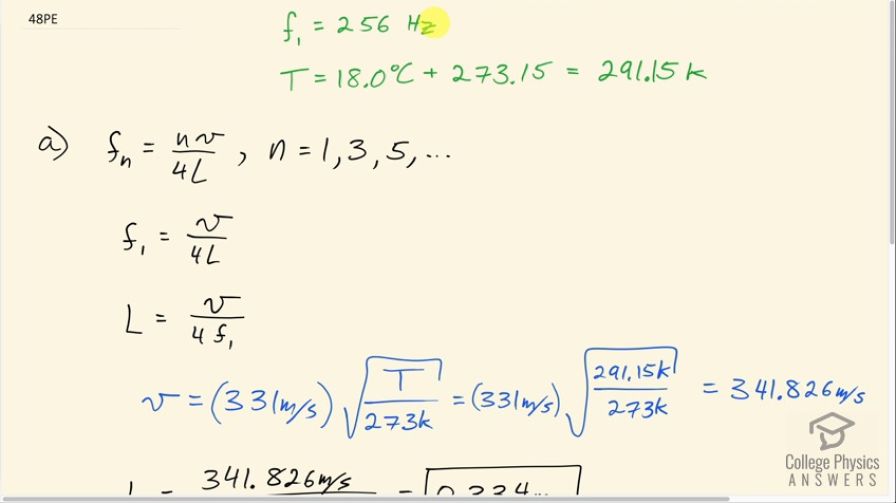 48PE
f₁ = 256 Hz
T = 18.0°C + 273.15 = 291.15 k
a) fₙ = nv/4L , n = 1, 3, 5, ...
f₁ = v/4L
L = v/4 f₁
v = (331 m/s) √(T/273k) = (331 m/s) √(291.15k/273k) = 341.826 m/s
341.826 m/s =
College Physics
ANSWERS